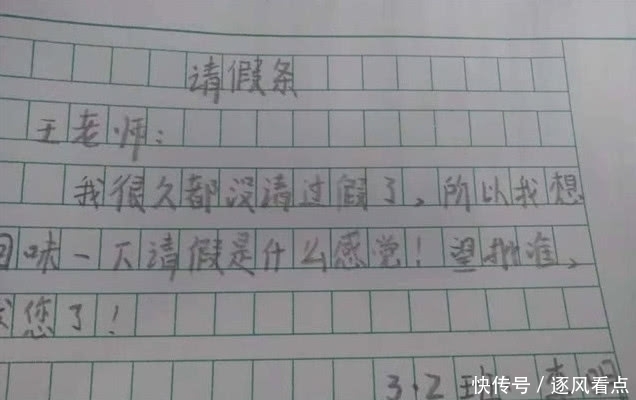 请假条
王老师：
我很久都没请过假了，所以我想
回味一下请假是什么感觉！望批准，
您了！
3.2班
快传号/逐风看点